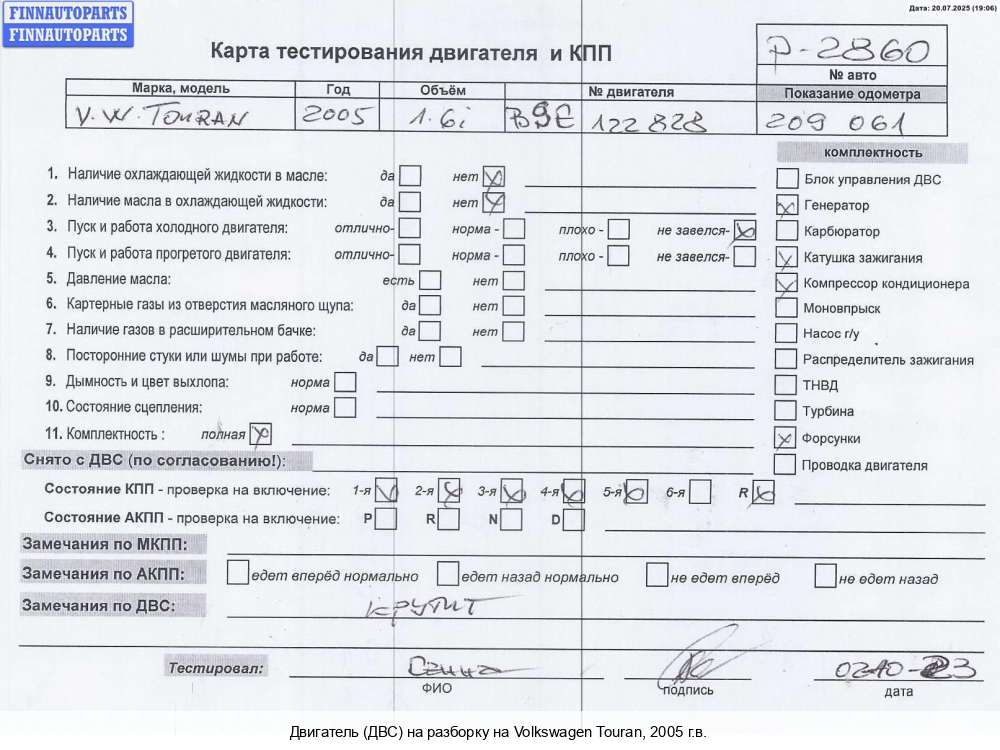 Дата: 20.07.2025 (19:06)
FINNAUTOPARTS
FINNAUTOPARTS
Карта тестирования двигателя и КПП
P-2860
№ авто
Марка, модель Год Объём № двигателя Показание одометра
V.W. TOURAN 2005 1.6i BSE 122828 209 061
комплектность
1. Наличие охлаждающей жидкости в масле: да нет
Блок управления ДВС
2. Наличие масла в охлаждающей жидкости: да нет
Генератор
3. Пуск и работа холодного двигателя: отлично- норма - плохо - не завелся-
Карбюратор
4. Пуск и работа прогретого двигателя: отлично- норма - плохо - не завелся-
Катушка зажигания
5. Давление масла: есть нет
Компрессор кондиционера
6. Картерные газы из отверстия масляного щупа: да нет
Моновпрыск
7. Наличие газов в расширительном бачке: да нет
Насос г/у
8. Посторонние стуки или шумы при работе: да нет
Распределитель зажигания
9. Дымность и цвет выхлопа: норма
ТНВД
10. Состояние сцепления: норма
Турбина
11. Комплектность : полная
Форсунки
Снято с ДВС (по согласованию!):
Проводка двигателя
Состояние КПП - проверка на включение: 1-я 2-я 3-я 4-я 5-я 6-я R
Состояние АКПП - проверка на включение: P R N D
Замечания по МКПП:
Замечания по АКПП: едет вперёд нормально едет назад нормально не едет вперёд не едет назад
Замечания по ДВС: крутит
Тестировал: 02-10-23
ФИО подпись дата
Двигатель (ДВС) на разборку на Volkswagen Touran, 2005 г.в.